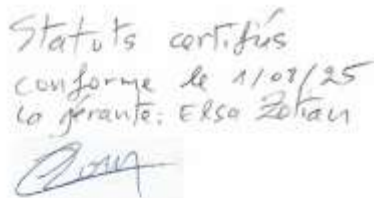 Statuts certifiés
conforme le 1/07/25
La gérante: Elsa Zotian